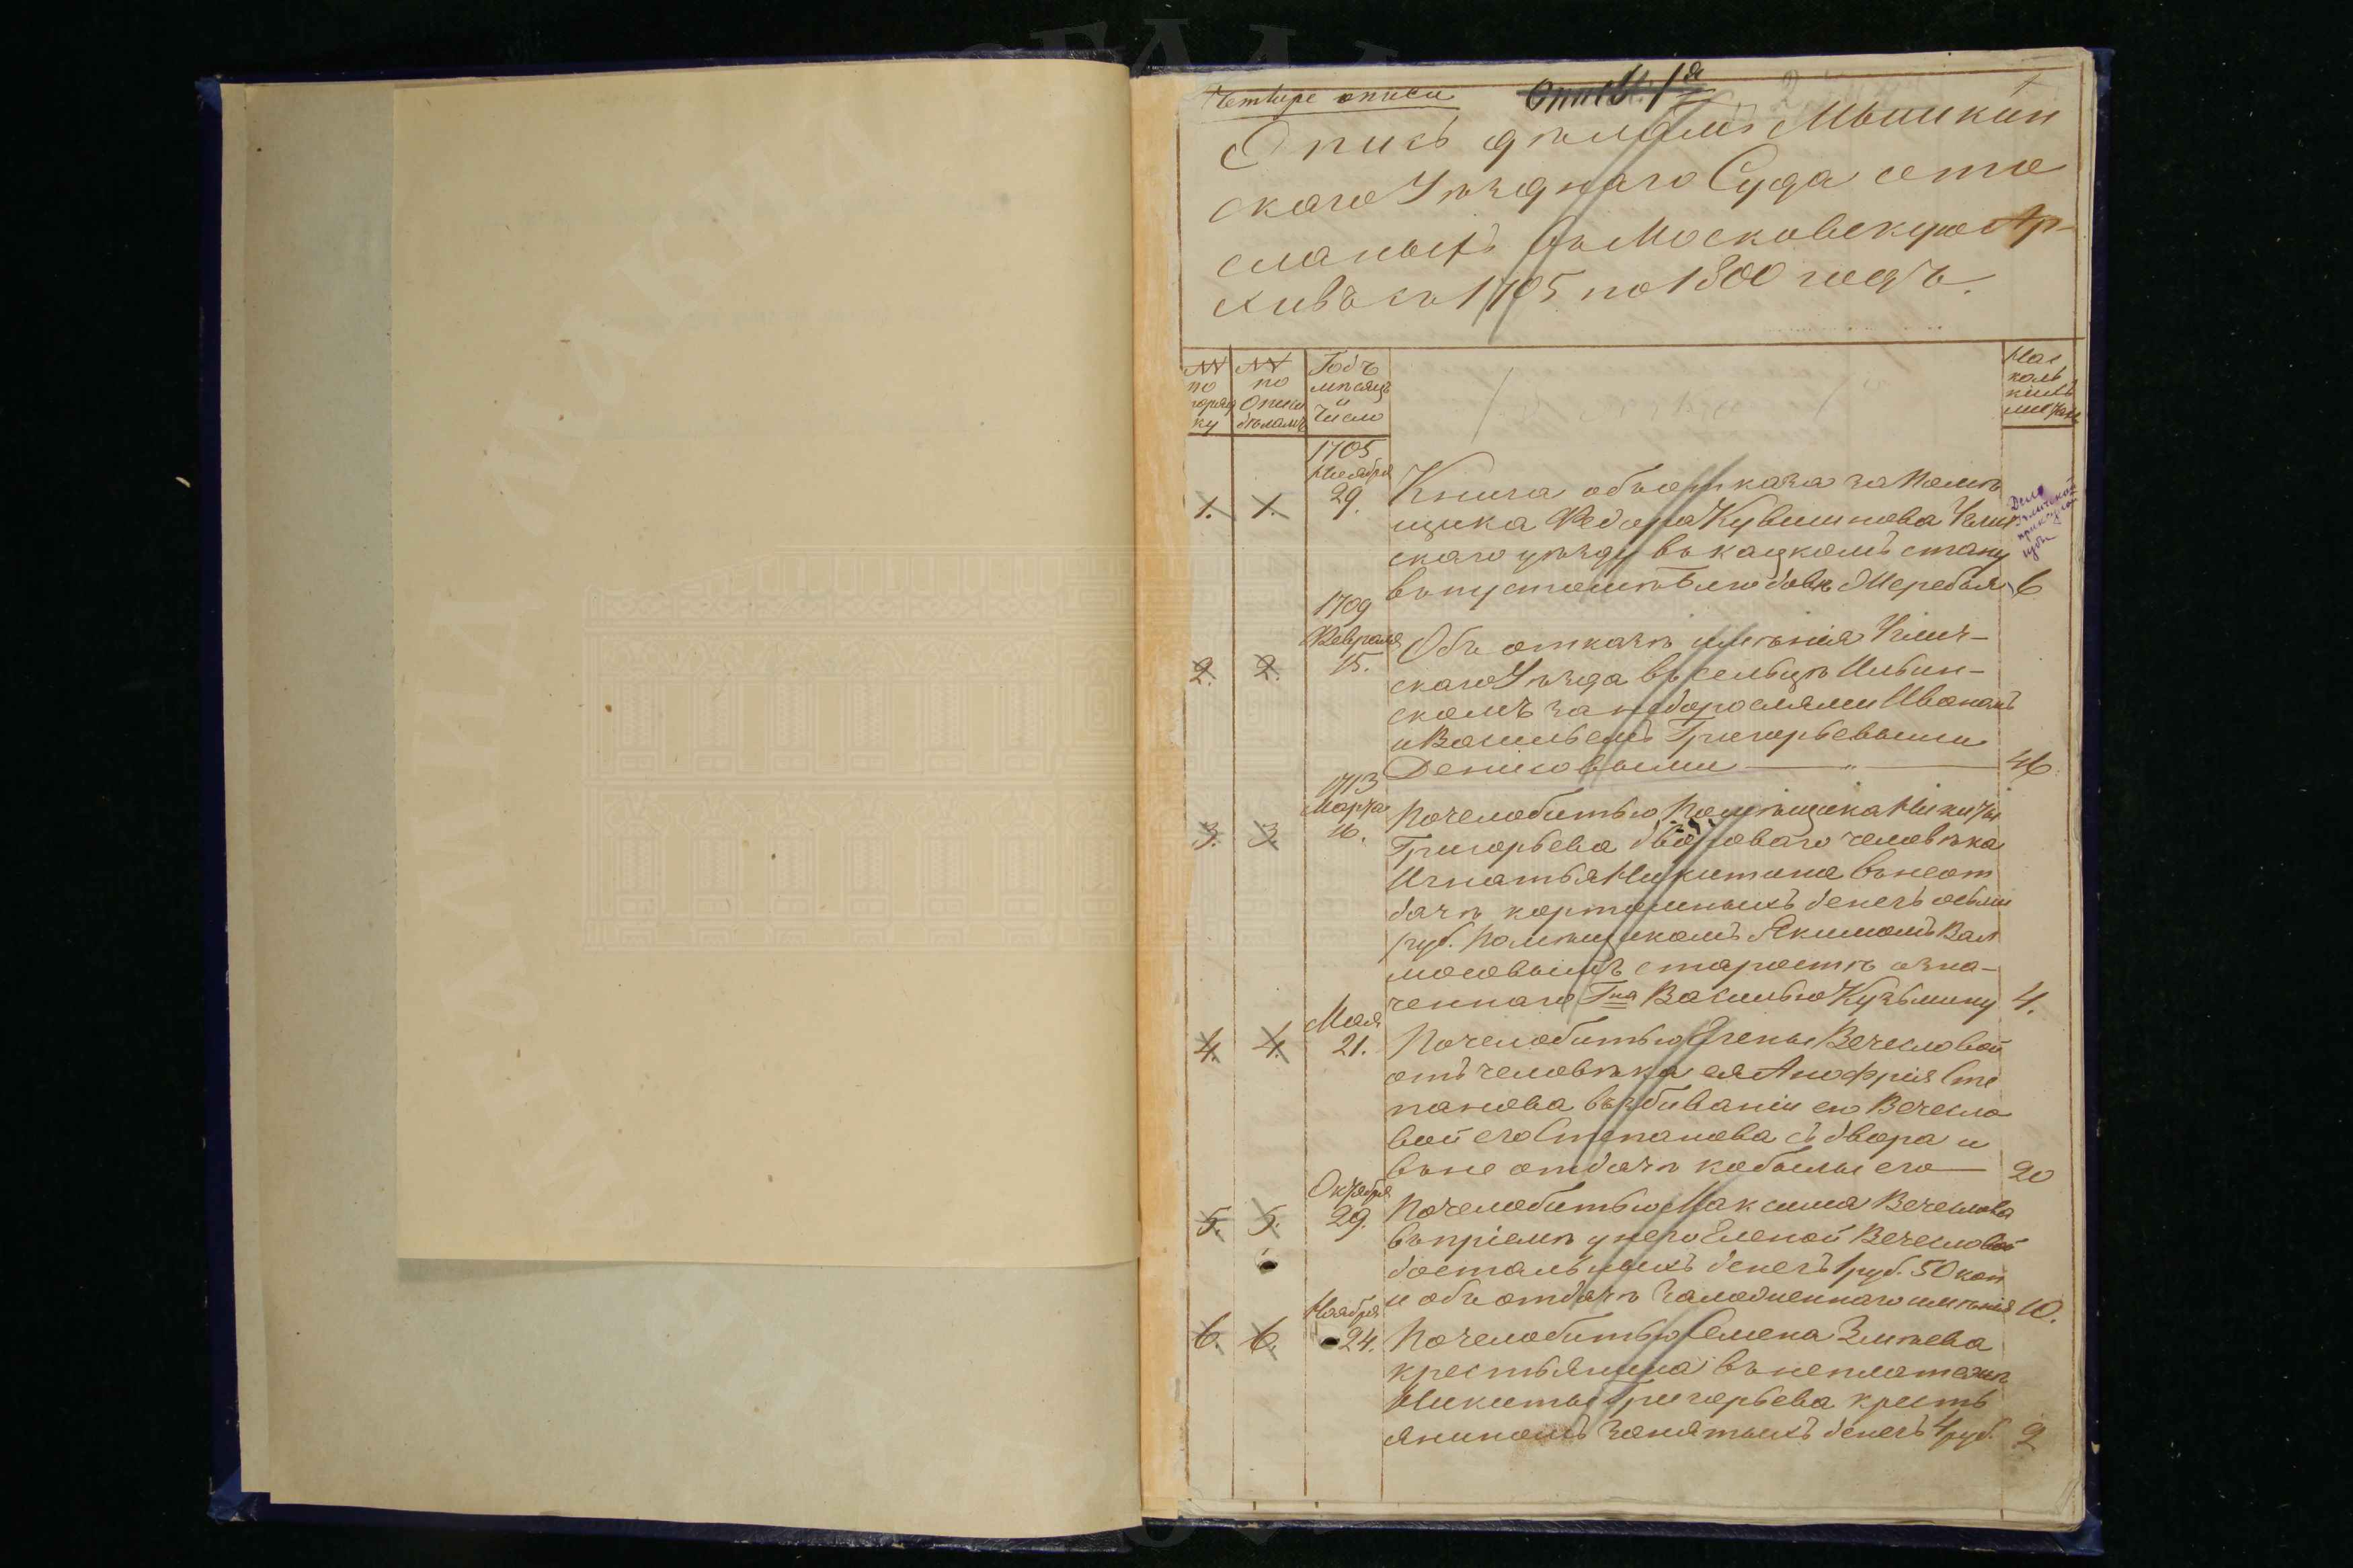 Четыре описи
Опись 1я
Опись дѣламъ Мышкин
скаго Уѣзднаго Суда сото
сланыхъ въ Московскую Ар-
хивъ съ 1705 по 1800 годъ.
№№ по порядку
№№ по описи дѣламъ
Годъ мѣсяцъ и число
На
коль
кихъ
листахъ
1705
Ноября
1. 1. 29. Книга объ отказа за Помѣ
щика Федора Кувшинова Углич
скаго уѣзду въ кацкомъ стану
въ пустошѣ Жеребья 6
Дело
Угличской
приказной
избы
1709
Февраля Объ отказѣ имѣнія Углич-
2. 2. 15. скаго Уѣзда въ сельцѣ Ильин-
скомъ за недорослями Иваномъ
и Васильемъ Григорьевыми
Денисовыми — „ — 46
1713
Марта По челобитью Помѣщика Никиты
3. 3. 16. Григорьева дворового человѣка
Игнатья Никитина въ неот
дачѣ кортомныхъ денегъ осьми
руб. Помѣщикомъ Якимомъ Вал
мосовымъ старостѣ озна-
ченнаго Гна Василью Кузьмину 4.
Мая
4. 4. 21. По челобитью Елены Вечесловой
отъ человѣка ея Анофрія Сте
панова въ збиваніи ею Вечесло
вой его Степанова съ двора и
въ не отдачѣ кобылы его — 20
Октября
5. 5. 29. По челобитью Максима Вечеслова
въ пріемѣ у него Еленой Вечесловой
достальныхъ денегъ 1 руб. 50 коп
и объ отдачѣ Заложеннаго имѣнія 10.
Ноября
6. 6. 24. По челобитью Семена Змѣева
крестьянина въ неплатежѣ
Никиты Григорьева кресть
яниномъ Занятыхъ денегъ 4 руб. 2